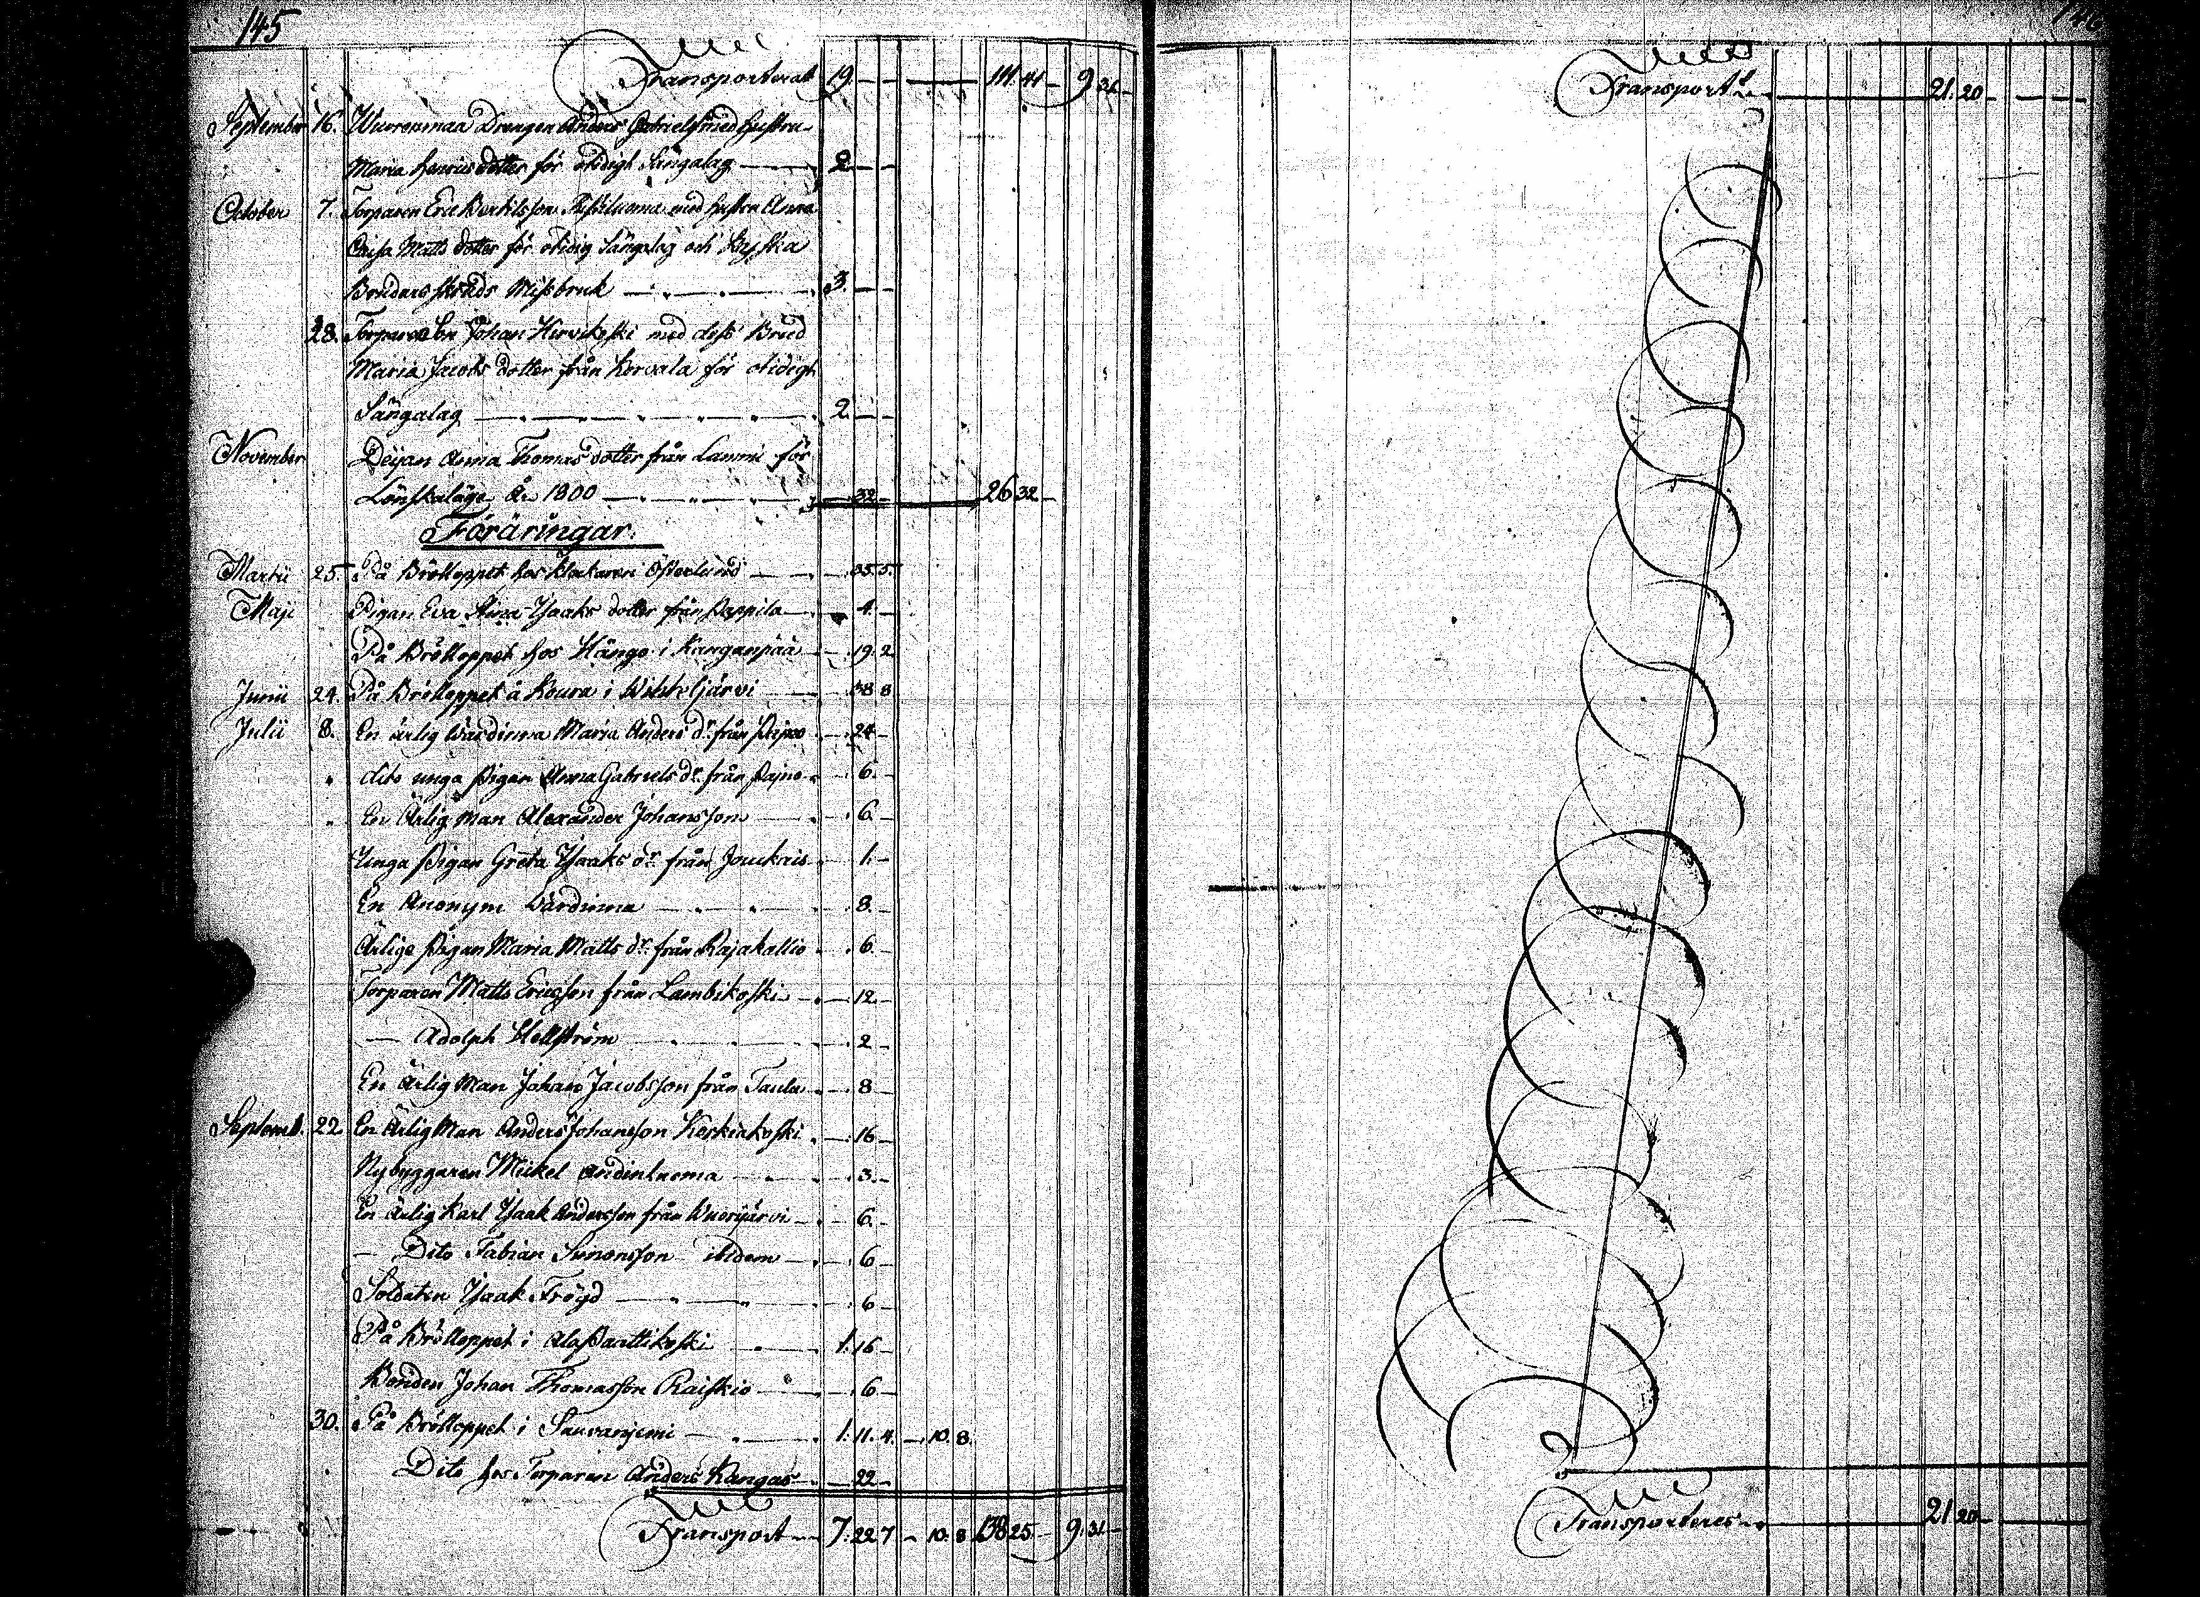 145
Transporterat 19. — — — 111. 41 — 9 31. —
September 16. Wuorenmaa Drengen Anders Gabrielss. med hustru
Maria Henricsdotter för otidigt Sängalag — 2 — —
October 7. Torparen Eric Bertilsson med hustru Anna
Caisa Matts dotter för otidig Sängelag och
Brudars skruds Missbruk — 3. — —
28. Torpareson Johan Hirvikoski med dess Brud
Maria Jacobs dotter från Korvala för otidigt
Sängalag — 2. — —
November Deyan Anna Thomas dotter från Lammi för
Lönskaläge År 1800 — 32 — 26 32 —
Föräringar.
Martii 25. På Brölloppet hos Klockaren Österlund — 35. 5.
Maji Pigan Eva Stina Ysaaks dotter från Pappila — 4. —
På Brölloppet hos Hänge i Kanganpää — 19. 2
Junii 24. På Brölloppet å Koura i — 38 8
Julii 8. En ärlig Wärdinna Maria Anders dr. från — 24 —
" dito unga Pigan Anna Gabriels dr. från Pajno — 6. —
" En Ärlig Man Alexander Johansson — 6. —
Unga Pigan Greta Ysaaks dr. från — 1. —
En Anonym Wärdinna — 8. —
Ärlige Pigan Maria Matts dr. från Rajakallio — 6. —
Torparen Matts Ericsson från Lambikoski — 12. —
— Adolph Hellström — 2 —
En Ärlig Man Johan Jacobsson från Taula — 8 —
Septemb. 22. En Ärlig Man Anders Johansson Keskiakoski — 16 —
Nybyggaren Mickel — 3. —
En Ärlig Karl Ysaak Andersson från Wuorijärvi — 6. —
— Dito Fabian Simonsson ibidem — 6 —
Soldaten Ysaak Fröyd — 6 —
På Brölloppet i — 1. 16 —
Bonden Johan Thomasson Raiskio — 6 —
30. På Brölloppet i Sauvanjemi — 1. 11. 4. — 10. 8.
Dito hos Torparen Anders Kangas — 22 —
Transport — 7. 22 7 — 10. 8 138 25 — 9. 31 —
146
Transport — 21. 20 — — —
Transporteres — 21 20 — — —